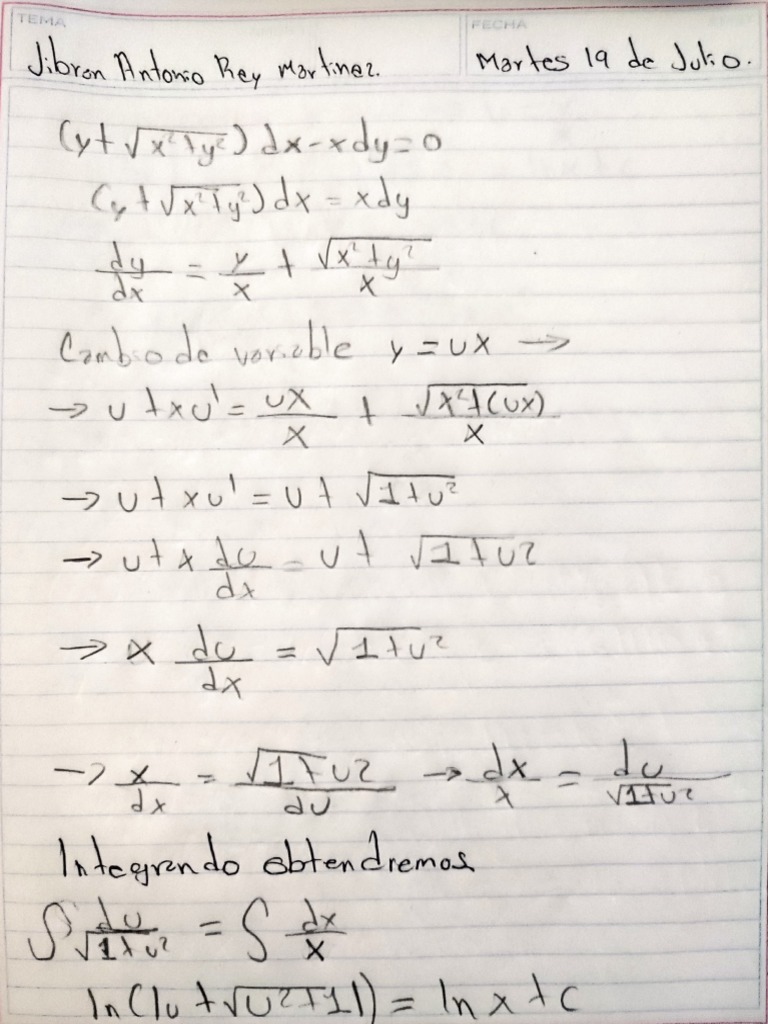 TEMA FECHA
Jibran Antonio Rey Martinez. Martes 19 de Julio.
(y+√x²+y²) dx-xdy=0
(y+√x²+y²) dx = xdy
dy/dx = y/x + √x²+y²/x
Cambio de variable y = ux →
→ u+xu' = ux/x + √x²+(ux)/x
→ u+xu' = u+ √1+u²
→ u+x du/dx = u+ √1+u²
→ x du/dx = √1+u²
→ x/dx = √1+u²/du → dx/x = du/√1+u²
Integrando obtendremos
∫ du/√1+u² = ∫ dx/x
ln(|u+√u²+1|) = ln x+c